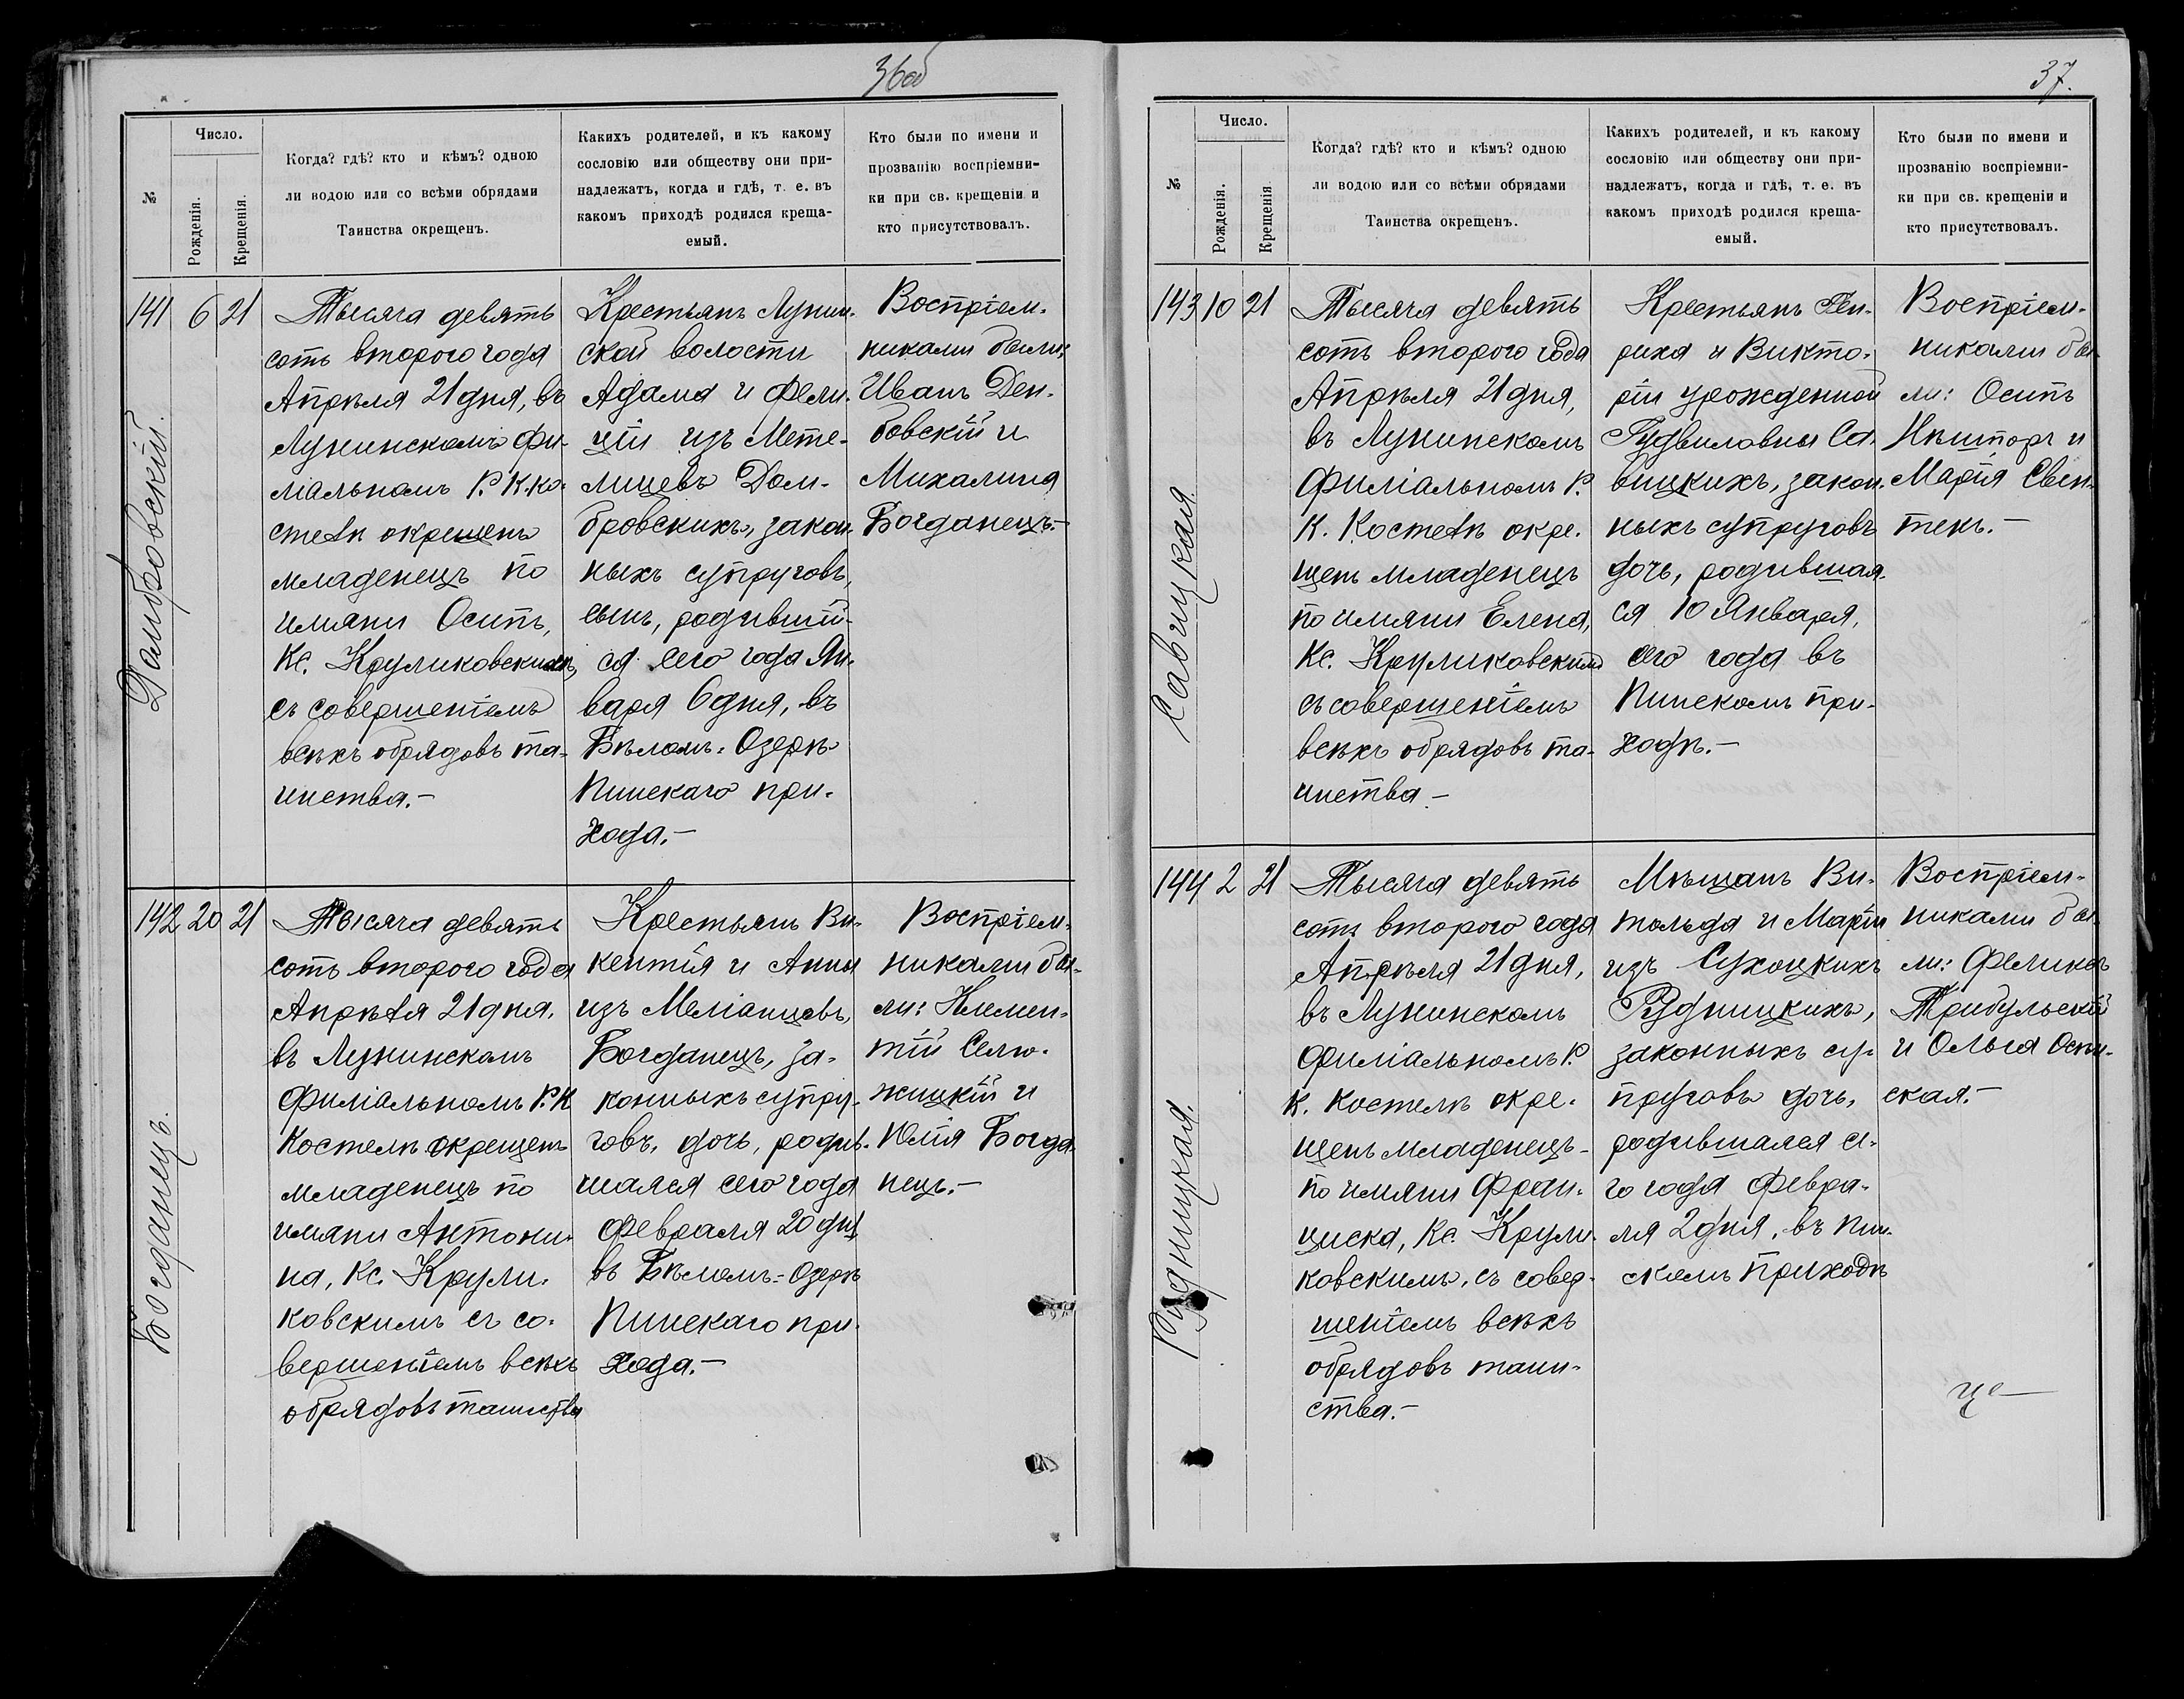 36об
№
Число.
Рожденія.
Крещенія.
Когда? гдѣ? кто и кѣмъ? одною
ли водою или со всѣми обрядами
Таинства окрещенъ.
Какихъ родителей, и къ какому
сословію или обществу они при-
надлежатъ, когда и гдѣ, т. е. въ
какомъ приходѣ родился креща-
емый.
Кто были по имени и
прозванію воспріемни-
ки при св. крещеніи и
кто присутствовалъ.
141 6 21
Домбровскій.
Тысяча девять
сотъ второго года
Апрѣля 21 дня, въ
Лунинскомъ фи-
ліальномъ Р. К. ко-
стелѣ окрещенъ
младенецъ по
имяни Осипъ,
Кс. Круликовскимъ,
съ совершеніемъ
всѣхъ обрядовъ та-
инства.-
Крестьянъ Лунин-
ской волости
Адама и Фели-
ціи изъ Мете-
лицевъ Дом-
бровскихъ, закон-
ныхъ супруговъ,
сынъ, родившій-
ся сего года Ян-
варя 6 дня, въ
Бѣломъ-Озерѣ
Пинскаго при-
хода.-
Воспріем-
никами были:
Иванъ Дем-
бовскій и
Михалина
Богданецъ.-
142 20 21
Богданецъ.
Тысяча девять
сотъ второго года
Апрѣля 21 дня,
въ Лунинскомъ
Филіальномъ Р. К
Костелѣ окрещенъ
младенецъ по
имяни Антони-
на, Кс. Крули-
ковскимъ съ со-
вершеніемъ всѣхъ
обрядовъ таинства
Крестьянъ Ви-
кентія и Анны
изъ Меліанцевъ,
Богданецъ, за-
конныхъ супру-
говъ, дочь, родив-
шаяся сего года
Февраля 20 дня
въ Бѣломъ-Озерѣ
Пинскаго при-
хода.-
Воспріем-
никами бы-
ли: Климен-
тій Селю-
жицкій и
Юлія Богда-
нецъ.-
37.
№
Число.
Рожденія.
Крещенія.
Когда? гдѣ? кто и кѣмъ? одною
ли водою или со всѣми обрядами
Таинства окрещенъ.
Какихъ родителей, и къ какому
сословію или обществу они при-
надлежатъ, когда и гдѣ, т. е. въ
какомъ приходѣ родился креща-
емый.
Кто были по имени и
прозванію воспріемни-
ки при св. крещеніи и
кто присутствовалъ.
143 10 21
Савицкая
Тысяча девять
сотъ второго года
Апрѣля 21 дня,
въ Лунинскомъ
Филіальномъ Р.
К. Костелѣ окре-
щенъ младенецъ
по имяни Елена,
Кс. Круликовскимъ
съ совершеніемъ
всѣхъ обрядовъ та-
инства -
Крестьянъ Ген-
риха и Викто-
ріи урожденной
Гудвиловны Са-
вицкихъ, закон-
ныхъ супруговъ
дочь, родившая-
ся 10 Января,
сего года въ
Пинскомъ при-
ходѣ.-
Воспріем-
никами бы-
ли: Осипъ
и
Марія Свен-
тек.-
144 2 21
Рудницкая.
Тысяча девять
сотъ второго года
Апрѣля 21 дня,
въ Лунинскомъ
Филіальномъ Р.
К. Костелѣ окре-
щенъ младенецъ-
по имяни Фран-
циска, Кс. Крули-
ковскимъ, съ совер-
шеніемъ всѣхъ
обрядовъ таин-
ства.-
Мѣщанъ Ви-
тольда и Маріи
изъ Сухоцкихъ
Рудницкихъ,
законныхъ су-
пруговъ дочь,
родившаяся се-
го года Февра-
ля 2 дня, въ Пин-
скомъ приходѣ
Воспріем-
никами бы-
ли: Феликсъ
Трибульскій
и Ольга Осин-
ская.-